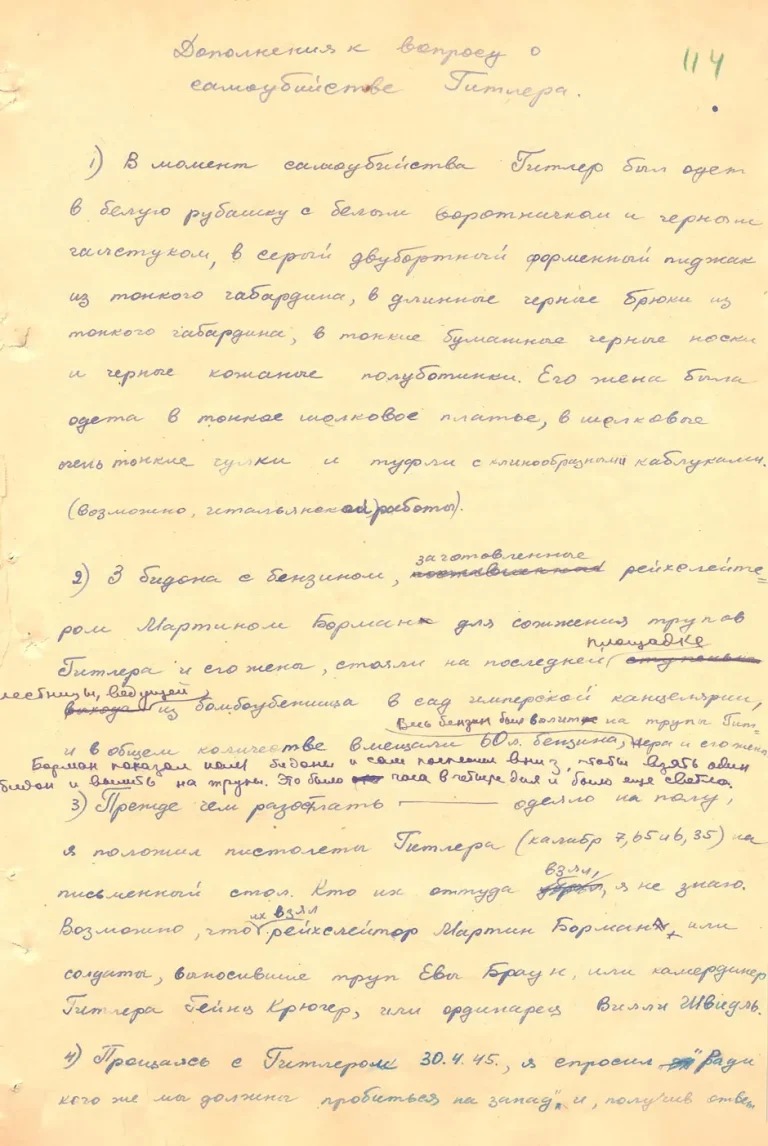 Дополнения к вопросу о
самоубийстве Гитлера.
114
1) В момент самоубийства Гитлер был одет
в белую рубашку с белым воротничком и черным
галстуком, в серый двубортный форменный пиджак
из тонкого габардина, в длинные черные брюки из
тонкого габардина, в тонкие бумажные черные носки
и черные кожаные полуботинки. Его жена была
одета в тонкое шолковое платье, в шолковые
очень тонкие чулки и туфли с клинообразными каблуками.
(возможно, итальянской работы).
заготовленные
2) 3 бидона с бензином, рейхслейте=
ром Мартином Борман для сожжения трупов
площадке
Гитлера и его жены, стояли на последней
лестницы, ведущей
выхода из бомбоубежища в сад имперской канцелярии,
Весь бензин был вылит на трупы Гит-
и в общем количестве вмещали 60 л. бензина, лера и его жены
Борман показал нам бидоны и сам поспешил вниз, чтобы взять один
бидон и вылить на трупы. Это было часа в четыре дня и было еще светло.
3) Прежде чем разостлать одеяло на полу,
я положил пистолеты Гитлера (калибр 7,65 и 6,35) на
взял,
письменный стол. Кто их оттуда я не знаю.
их взял
Возможно, что рейхслейтор Мартин Борман, или
солдаты, выносившие труп Евы Браун, или камердинер
Гитлера Гейнц Крюгер, или ординарец Вилли Швидль.
4) Прощаясь с Гитлером 30.4.45., я спросил "Ради
кого же мы должны пробиться на запад", и, получив ответ